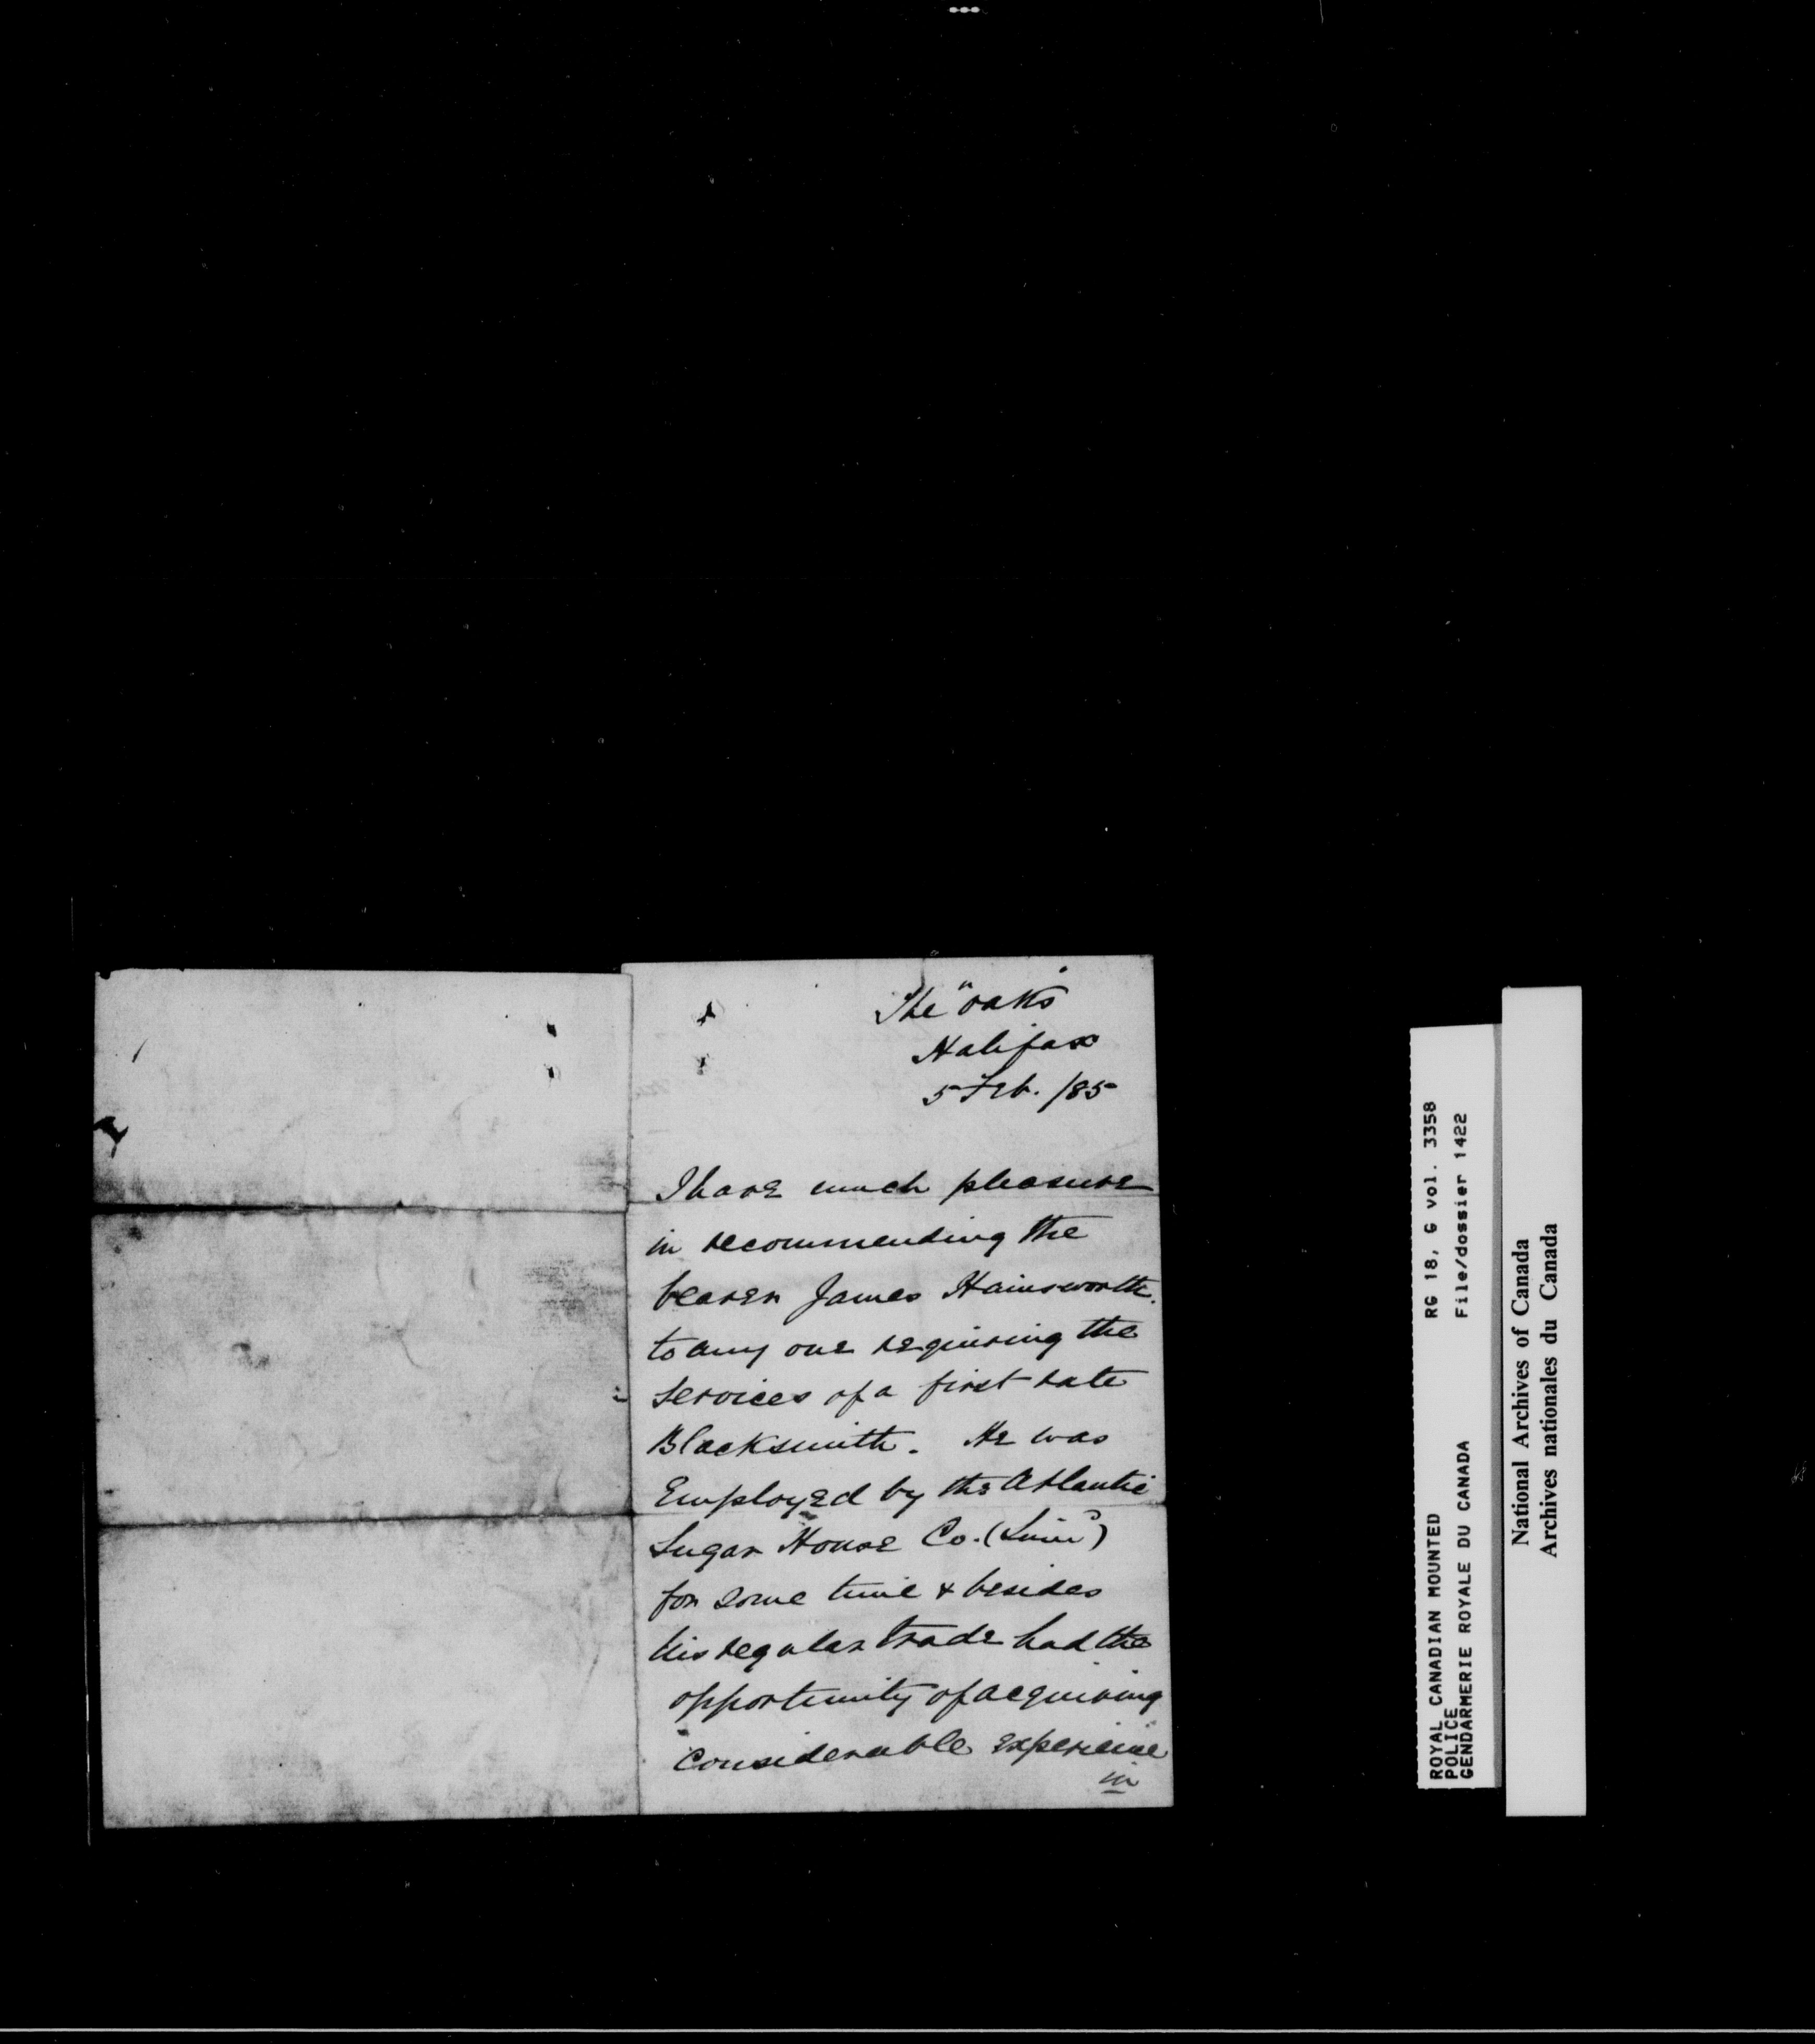 The "oaks"
Halifax
5 Feb. /85
I have much pleasure
in recommending the
bearer James Hainsworth.
to any one requiring the
services of a first rate
Blacksmith. He was
Employed by the Atlantic
Sugar House Co. (Limd)
for some time & besides
his regular trade had the
opportunity of acquiring
considerable experience
in
ROYAL CANADIAN MOUNTED RG 18, G vol. 3358
POLICE
GENDARMERIE ROYALE DU CANADA File/dossier 1422
National Archives of Canada
Archives nationales du Canada